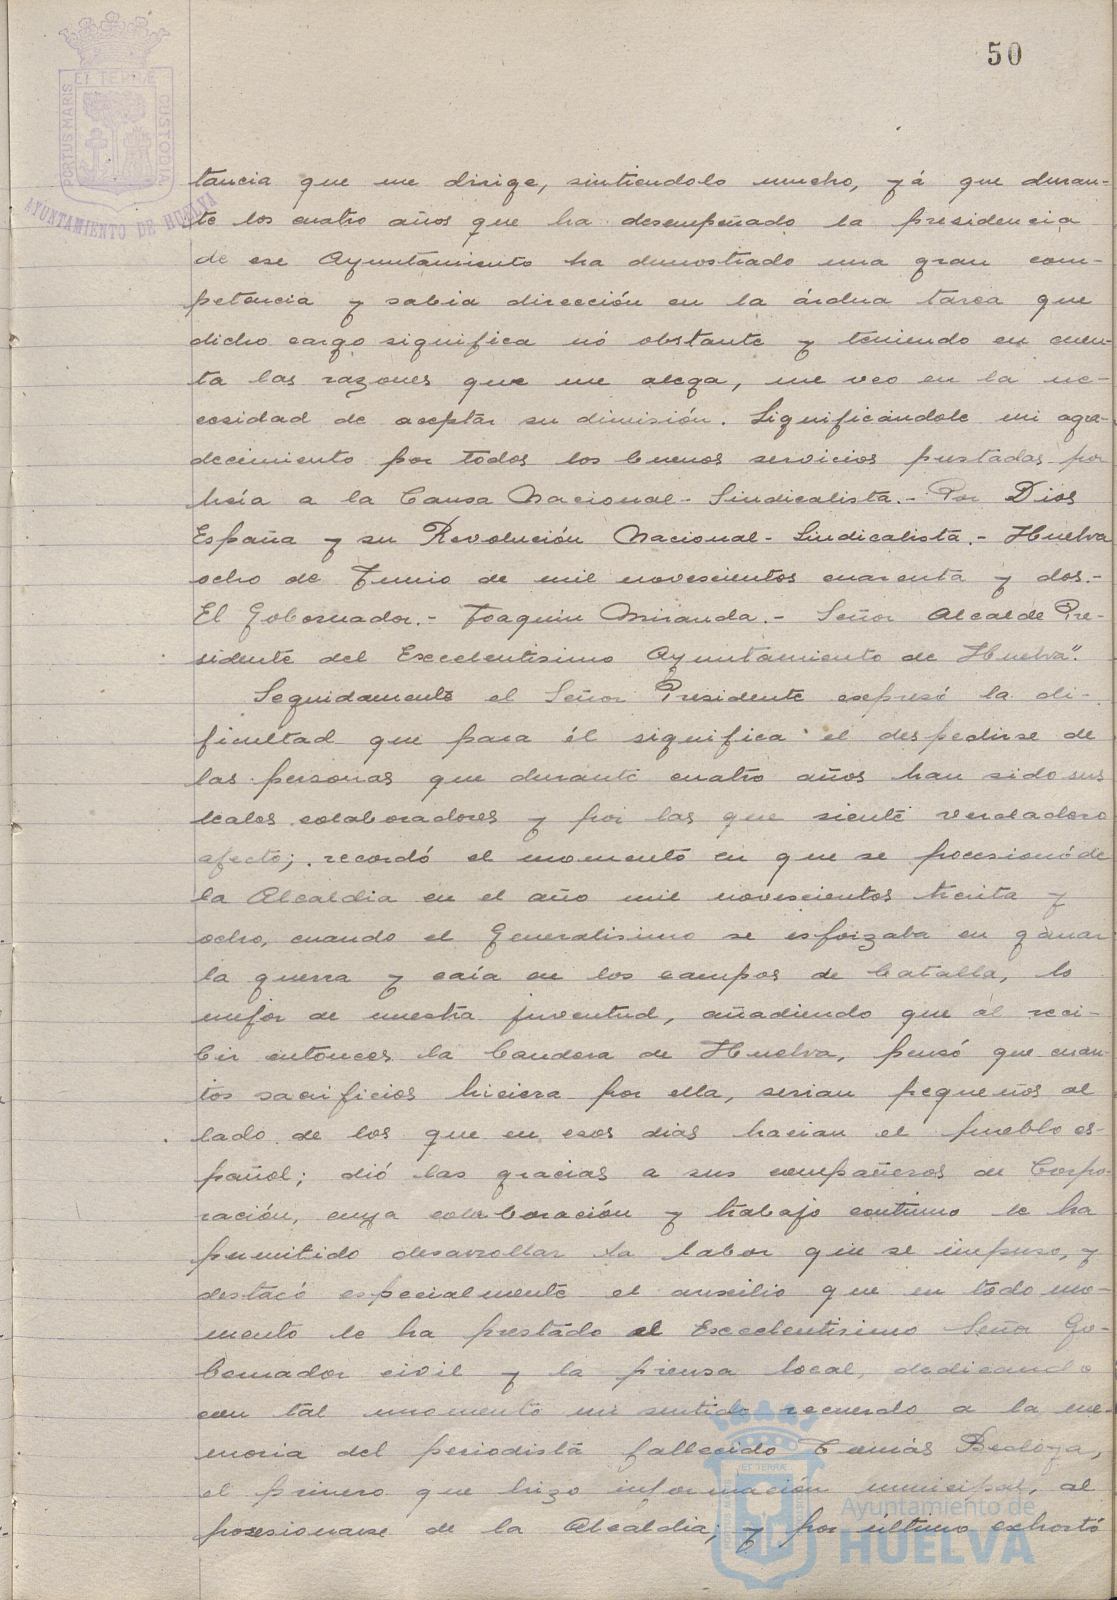 50
PORTUS MARIS ET TERRÆ CUSTODIA
AYUNTAMIENTO DE HUELVA
tancia que me dirige, sintiendolo mucho, yá que duran-
te los cuatro años que ha desempeñado la presidencia
de ese Ayuntamiento ha demostrado una gran com-
petencia y sabia dirección en la árdua tarea que
dicho cargo significa nó obstante y teniendo en cuen-
ta las razones que me alega, me veo en la ne-
cesidad de aceptar su dimisión. Significándole mi agra-
decimiento por todos los buenos servicios prestados por
a la Causa Nacional-Sindicalista.- Por Dios
España y su Revolución Nacional-Sindicalista.- Huelva
ocho de Junio de mil novescientos cuarenta y dos.-
El Gobernador.- Joaquin Miranda.- Señor Alcalde Pre-
sidente del Excelentisimo Ayuntamiento de Huelva".
Seguidamente el Señor Presidente expresó la di-
ficultad que para él significa el despedirse de
las personas que durante cuatro años han sido sus
leales colaboradores y por las que siente verdadero
afecto; recordó el momento en que se posesionó de
la Alcaldia en el año mil novescientos treinta y
ocho, cuando el Generalisimo se esforzaba en ganar
la guerra y caía en los campos de batalla, lo
mejor de nuestra juventud, añadiendo que al reci-
bir entonces la bandera de Huelva, pensó que cuan-
tos sacrificios hiciera por ella, serian pequeños al
lado de los que en esos dias hacian el pueblo es-
pañol; dió las gracias a sus compañeros de Corpo-
ración, cuya colaboración y trabajo continuo le ha
permitido desarrollar la labor que se impuso, y
destacó especialmente el auxilio que en todo mo-
mento le ha prestado el Excelentisimo Señor Go-
bernador civil y la prensa local, dedicando
en tal momento un sentido recuerdo a la me-
moria del periodista fallecido Tomás Bedoya,
el primero que hizo información municipal, al
posesionarse de la Alcaldia; y por último exhortó
Ayuntamiento de
HUELVA